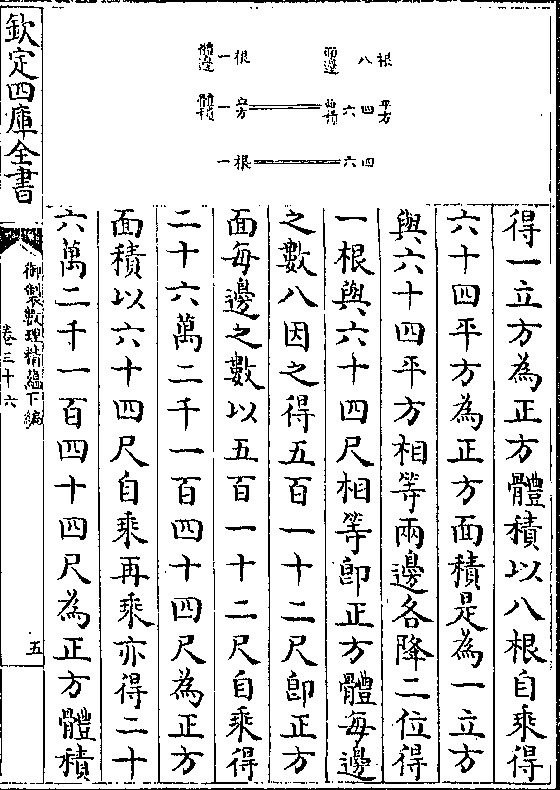 體邊 一根 面邊 八根
體積 一立方 面積 六四平方
一根 六四
得一立方為正方體積以八根自乘得
六十四平方為正方面積是為一立方
與六十四平方相等兩邊各降二位得
一根與六十四尺相等卽正方體每邊
之數八因之得五百一十二尺卽正方
面每邊之數以五百一十二尺自乘得
二十六萬二千一百四十四尺為正方
面積以六十四尺自乘再乘亦得二十
六萬二千一百四十四尺為正方體積
欽定四庫全書
御製數理精蘊下編
卷三十六
五